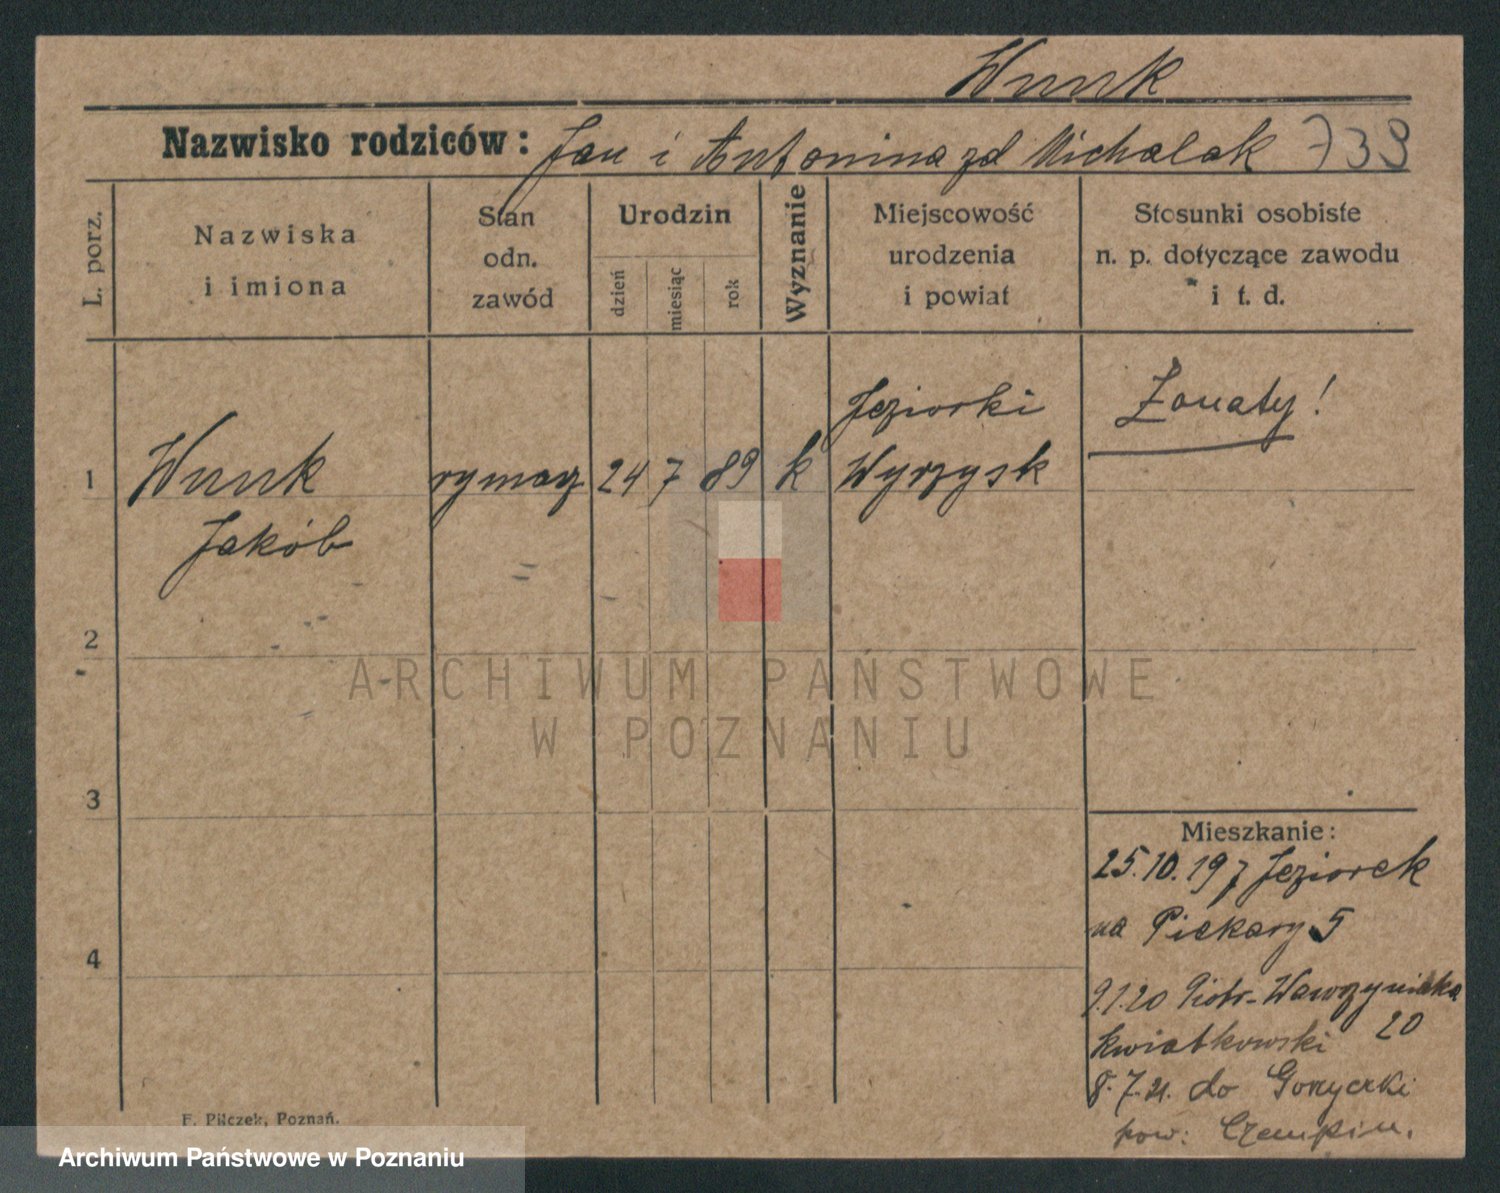 Wnuk
Nazwisko rodziców: Jan i Antonina zd Michalak 739
L. porz.
Nazwiska i imiona
Stan odn. zawód
Urodzin
dzień
miesiąc
rok
Wyznanie
Miejscowość urodzenia i powiat
Stosunki osobiste n. p. dotyczące zawodu i t. d.
Jeziorki
Żonaty!
1 Wnuk rymarz 24 7 89 k Wyrzysk
Jakób
2
3
4
ARCHIWUM PAŃSTWOWE
W POZNANIU
Mieszkanie:
25.10.19 z Jeziorek
na Piekary 5
9.1.20 Piotr-Wawrzyniaka
Kwiatkowski 20
8.7.21. do
pow: Czempiń.
F. Pilczek, Poznań.
Archiwum Państwowe w Poznaniu